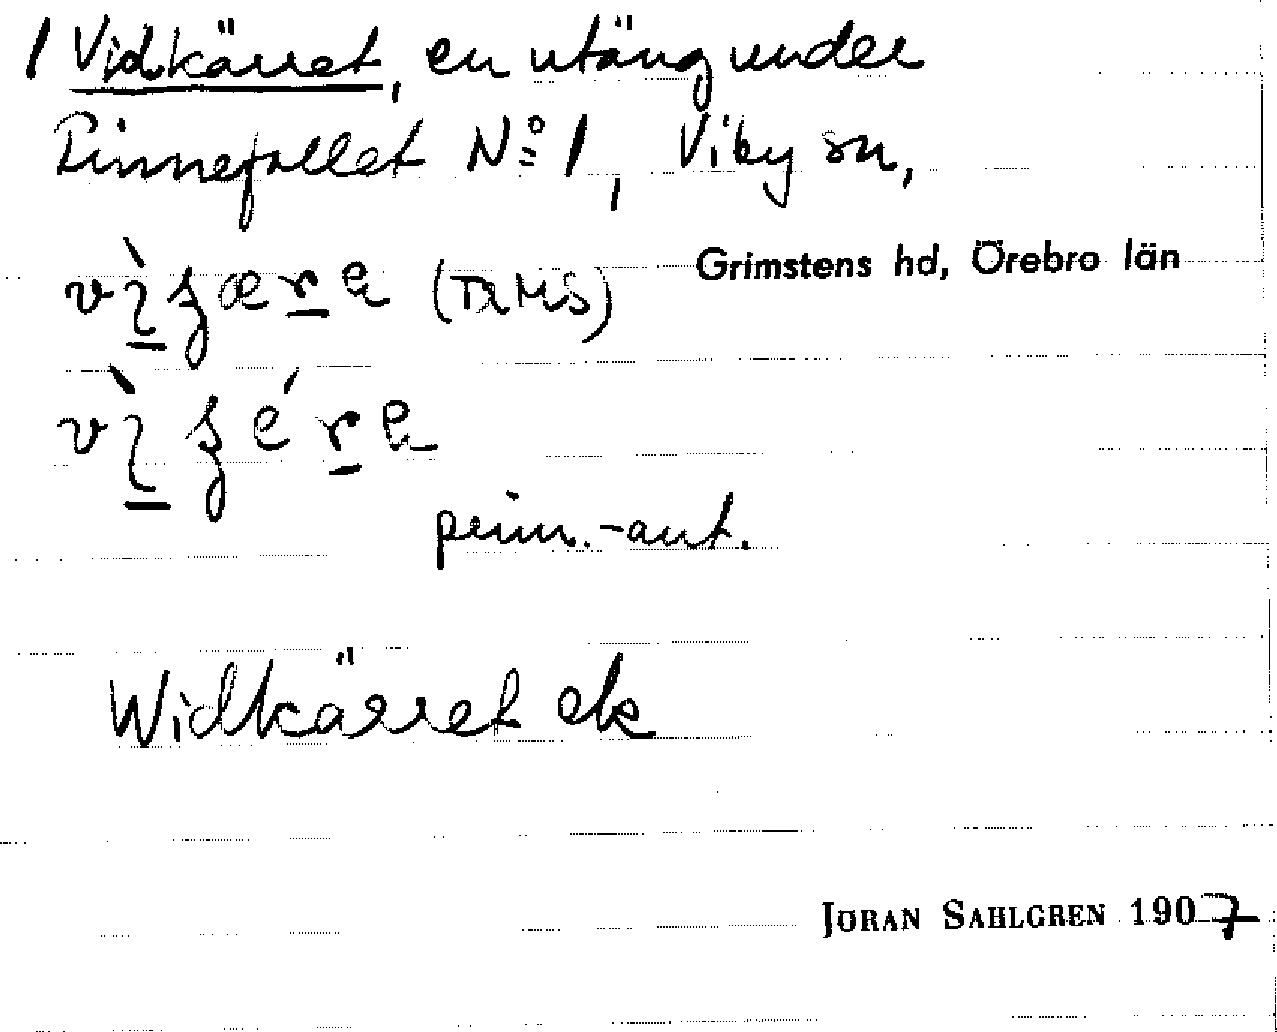 / Vidkärret, en utäng under
Pinnefallet Nº 1, Viby sn,
Grimstens hd, Örebro län
(TRMS)
prim.-ant.
Widkärret ek
JÖRAN SAHLGREN 1907